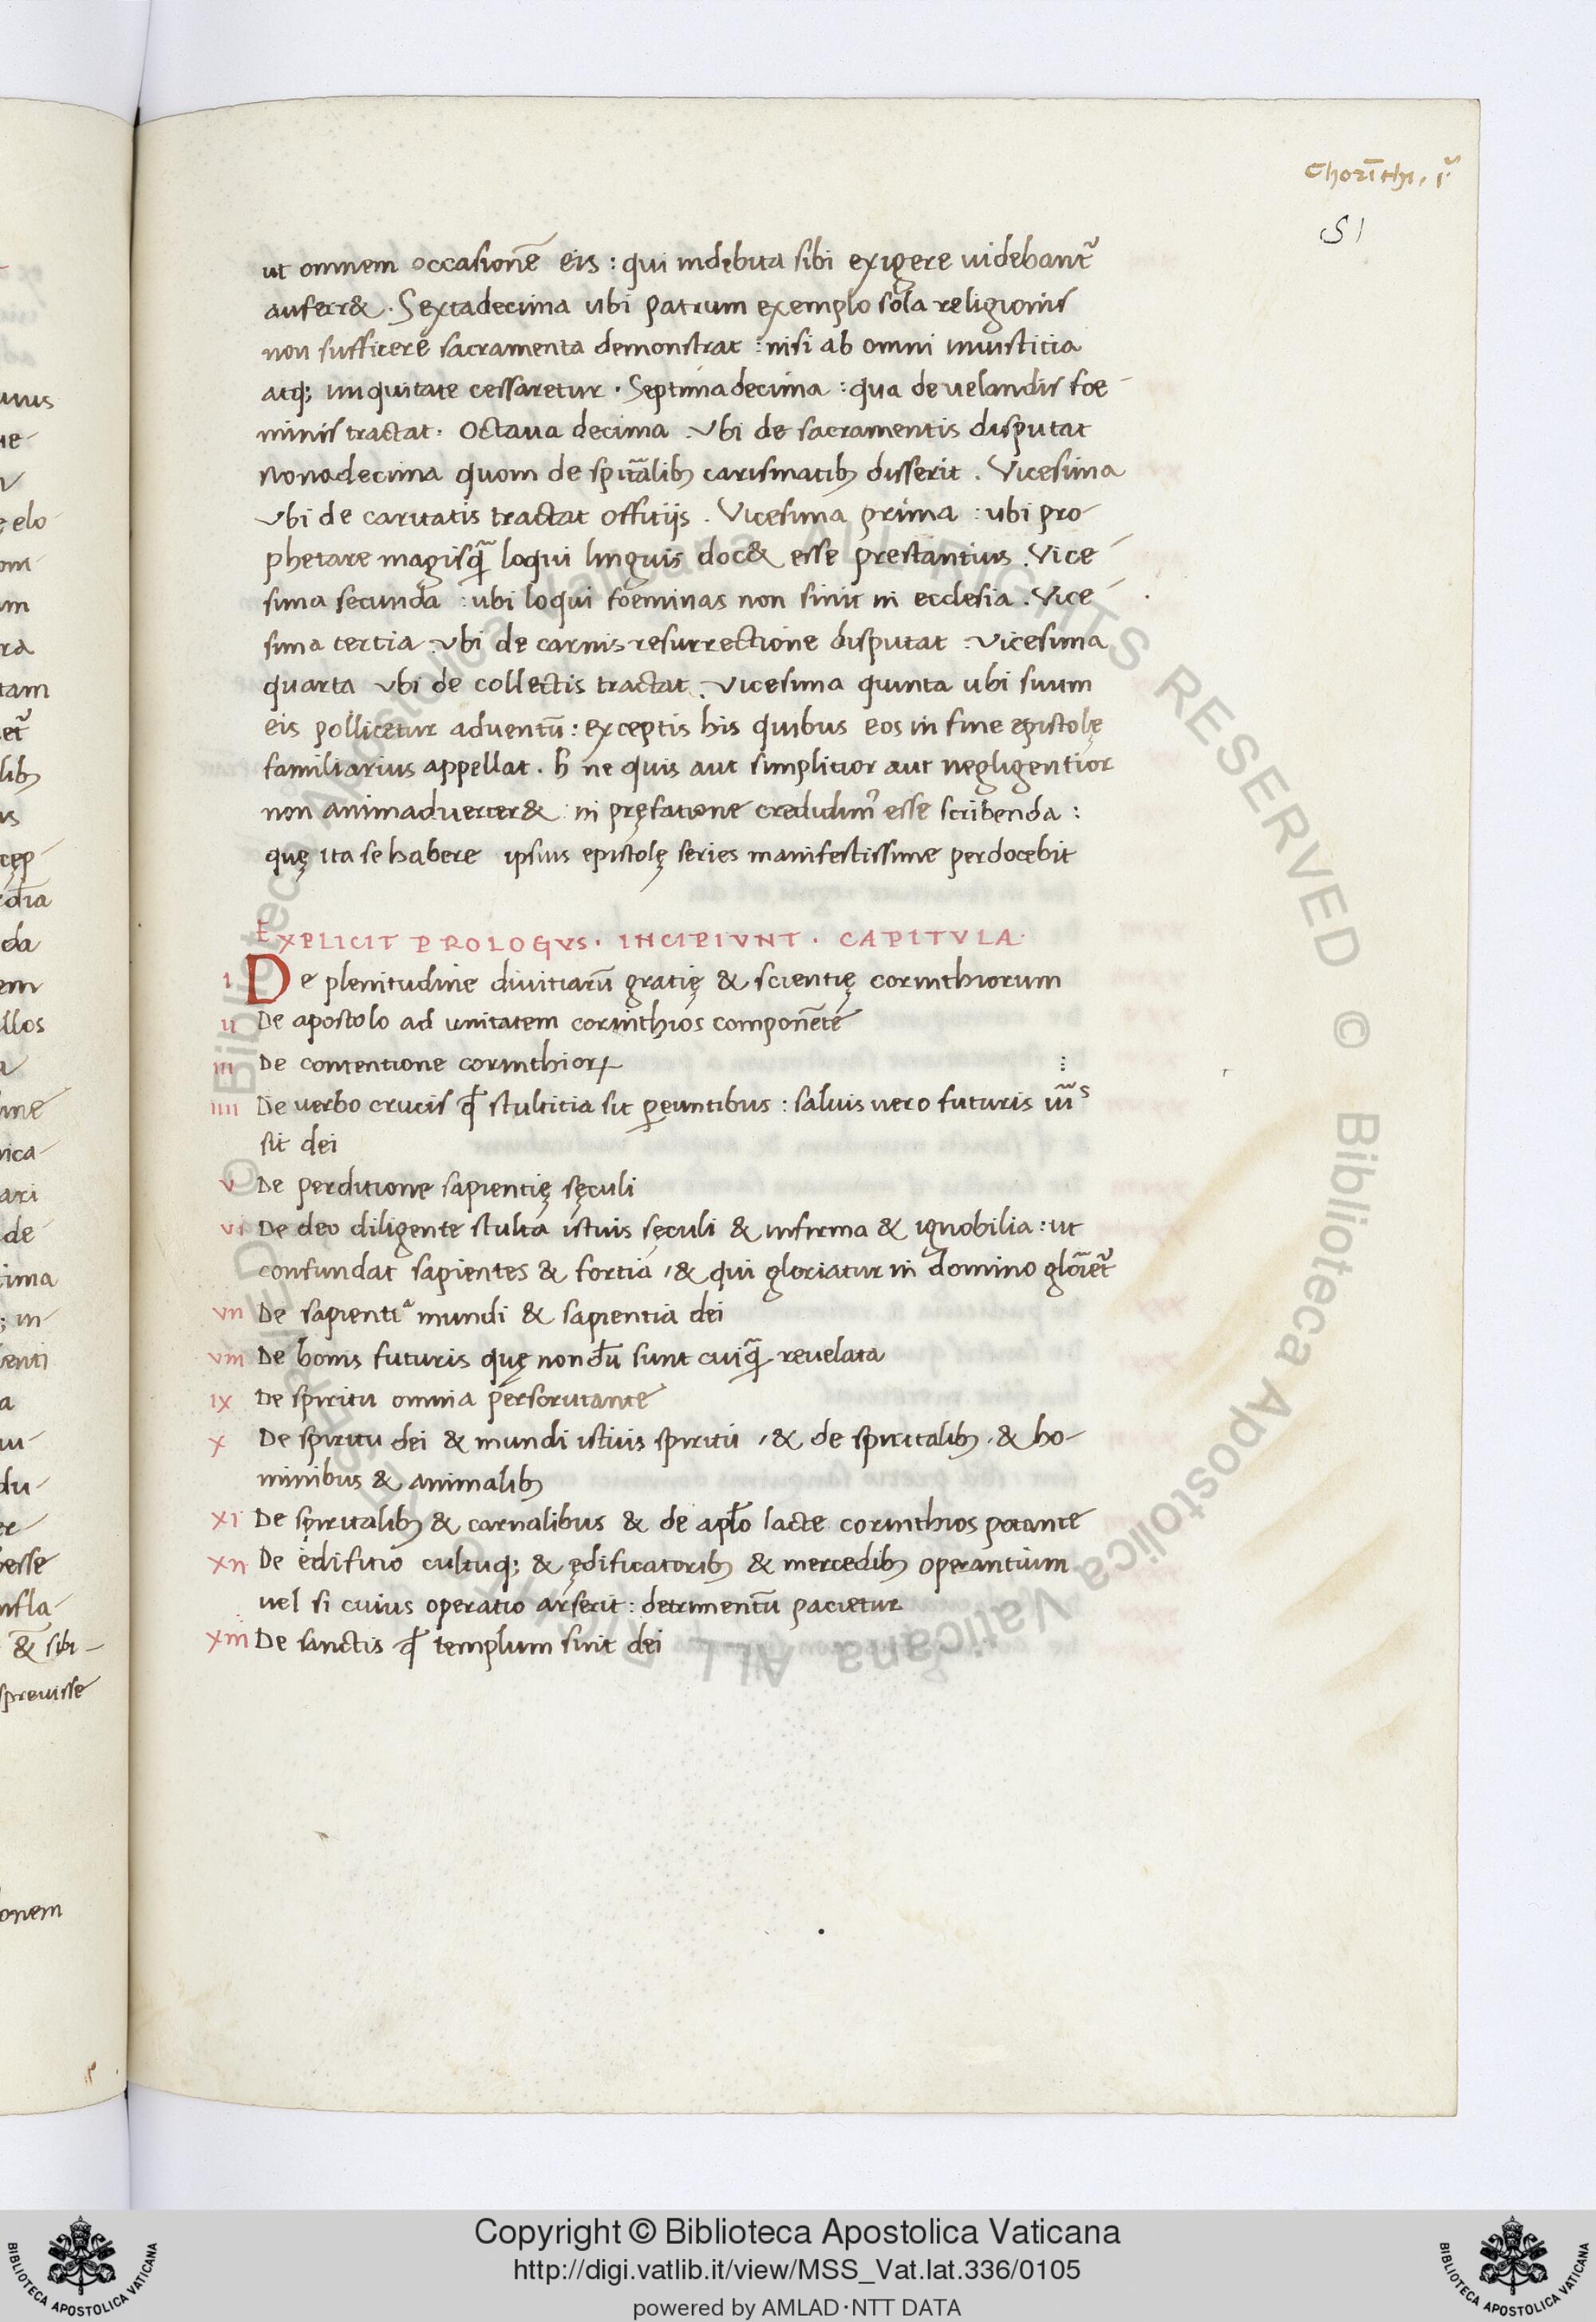 Chorīthi. i
51
ut omnem occasionē eis : qui indebita sibi exigere uidebant᷑
auferr& . Sextadecima ubi patrum exemplo sola religionis
non sufficere sacramenta demonstrat : nisi ab omni iniusticia
atq; iniquitate cessaretur . Septimadecima : qua de uelandis foe-
minis tractat . Octaua decima . Vbi de sacramentis disputat
Nonadecima quom de spūalibꝫ carismatibꝫ disserit . Vicesima
Vbi de caritatis tractat offitijs . Vicesima prima : ubi pro-
phetare magisq̄ loqui linguis doc& esse prestantius . Vice-
sima secunda : ubi loqui foeminas non sinit in ecclesia . Vice-
sima tertia . Vbi de carnis resurrectione disputat : Vicesima
quarta Vbi de collectis tractat . Vicesima quinta ubi suum
eis pollicetur aduentū : exceptis his quibus eos in fine epistolę
familiarius appellat . h̄ ne quis aut simplitior aut negligentior
non animaduerter& in pręfatione credidim᷒ esse scribenda :
quę ita se habere ipsius epistolę series manifestissime perdocebit
EXPLICIT PROLOGVS . INCIPIVNT . CAPITVLA .
i De plenitudine diuitiarū gratię & scientię corinthiorum
ii De apostolo ad unitatem corinthios componēte
iii De contentione corinthioꝝ
iiii De uerbo crucis ꝙ stultitia sit ꝑeuntibus : saluis uero futuris
sit dei
v De perditione sapientię sęculi
vi De deo diligente stulta istius sęculi & infirma & ignobilia : ut
confundat sapientes & fortia , & qui gloriatur in domino glōiet᷑
vii De sapientia mundi & sapientia dei
viii De bonis futuris quę nondū sunt cuiq̄ reuelata
ix De spiritu omnia perscrutante
x De spiritu dei & mundi istius spiritu , & de spiritalibꝫ . & ho-
minibus & animalibꝫ
xi De spiritalibꝫ & carnalibus & de apl̄o lacte corinthios potante
xii De edifitio cultuq; & ędificatoribꝫ & mercedibꝫ operantium
uel si cuius operatio arserit : detrimentū pacietur
xiii De sanctis ꝙ templum sint dei
Copyright © Biblioteca Apostolica Vaticana
http://digi.vatlib.it/view/MSS_Vat.lat.336/0105
powered by AMLAD·NTT DATA